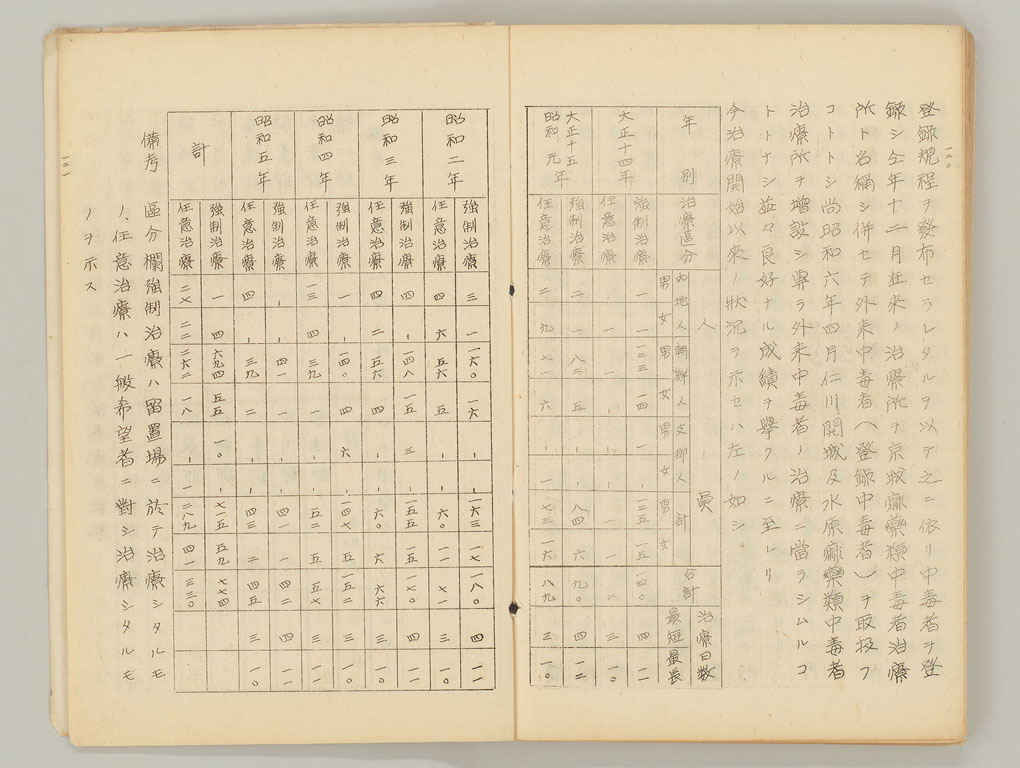 一二〇
登錄規程ヲ發布セラレタルヲ以テ之ニ依リ中毒者ヲ登
錄シ仝年十二月在來ノ治療所ヲ京城麻藥類中毒者治療
所ト名稱シ併セテ外來中毒者(登錄中毒者)ヲ取扱フ
コトトシ尚昭和六年四月仁川、開城及水原麻藥類中毒者
治療所ヲ增設シ專ラ外來中毒者ノ治療ニ當ラシムルコ
トトナシ益々良好ナル成績ヲ擧クルニ至レリ
今治療開始以來ノ狀況ヲ示セハ左ノ如シ
年別 治療區分 人員 治療日數
內地人 男 女 朝鮮人 男 女 支那人 男 女 計 男 女 合計 最短 最長
大正十四年 強制治療 一 一 一三三 一四 一 、 一三五 一五 一四〇 四 一一
任意治療 、 一 一 、 、 、 一 一 二 三 一〇
大正十五年 昭和元年 強制治療 二 一 八二 五 、 、 八四 六 九〇 四 一二
任意治療 二 九 七一 六 、 一 七三 一六 八九 三 一〇
昭和二年 強制治療 三 一 一六〇 一六 、 、 一六三 一七 一八〇 四 一一
任意治療 四 六 五六 五 、 、 六〇 一一 七一 三 一〇
昭和三年 強制治療 四 、 一四八 一五 三 、 一五五 一五 一七〇 四 一一
任意治療 四 二 五六 四 、 、 六〇 六 六六 三 一〇
昭和四年 強制治療 一 、 一四〇 四 六 、 一四七 五 一五二 三 一一
任意治療 一三 四 三九 一 、 、 五二 五 五七 三 一一
昭和五年 強制治療 、 、 四一 一 、 、 四一 一 四二 四 一一
任意治療 四 、 三九 二 、 、 四三 二 四五 三 一〇
計 強制治療 一一 四 六九四 五五 一〇 、 七一五 五九 七七四
任意治療 二七 二二 二六二 一八 、 一 二八九 四一 三三〇
備考 區分欄強制治療ハ留置場ニ於テ治療シタルモ
ノ、任意治療ハ一般希望者ニ對シ治療シタルモ
ノヲ示ス
一二一